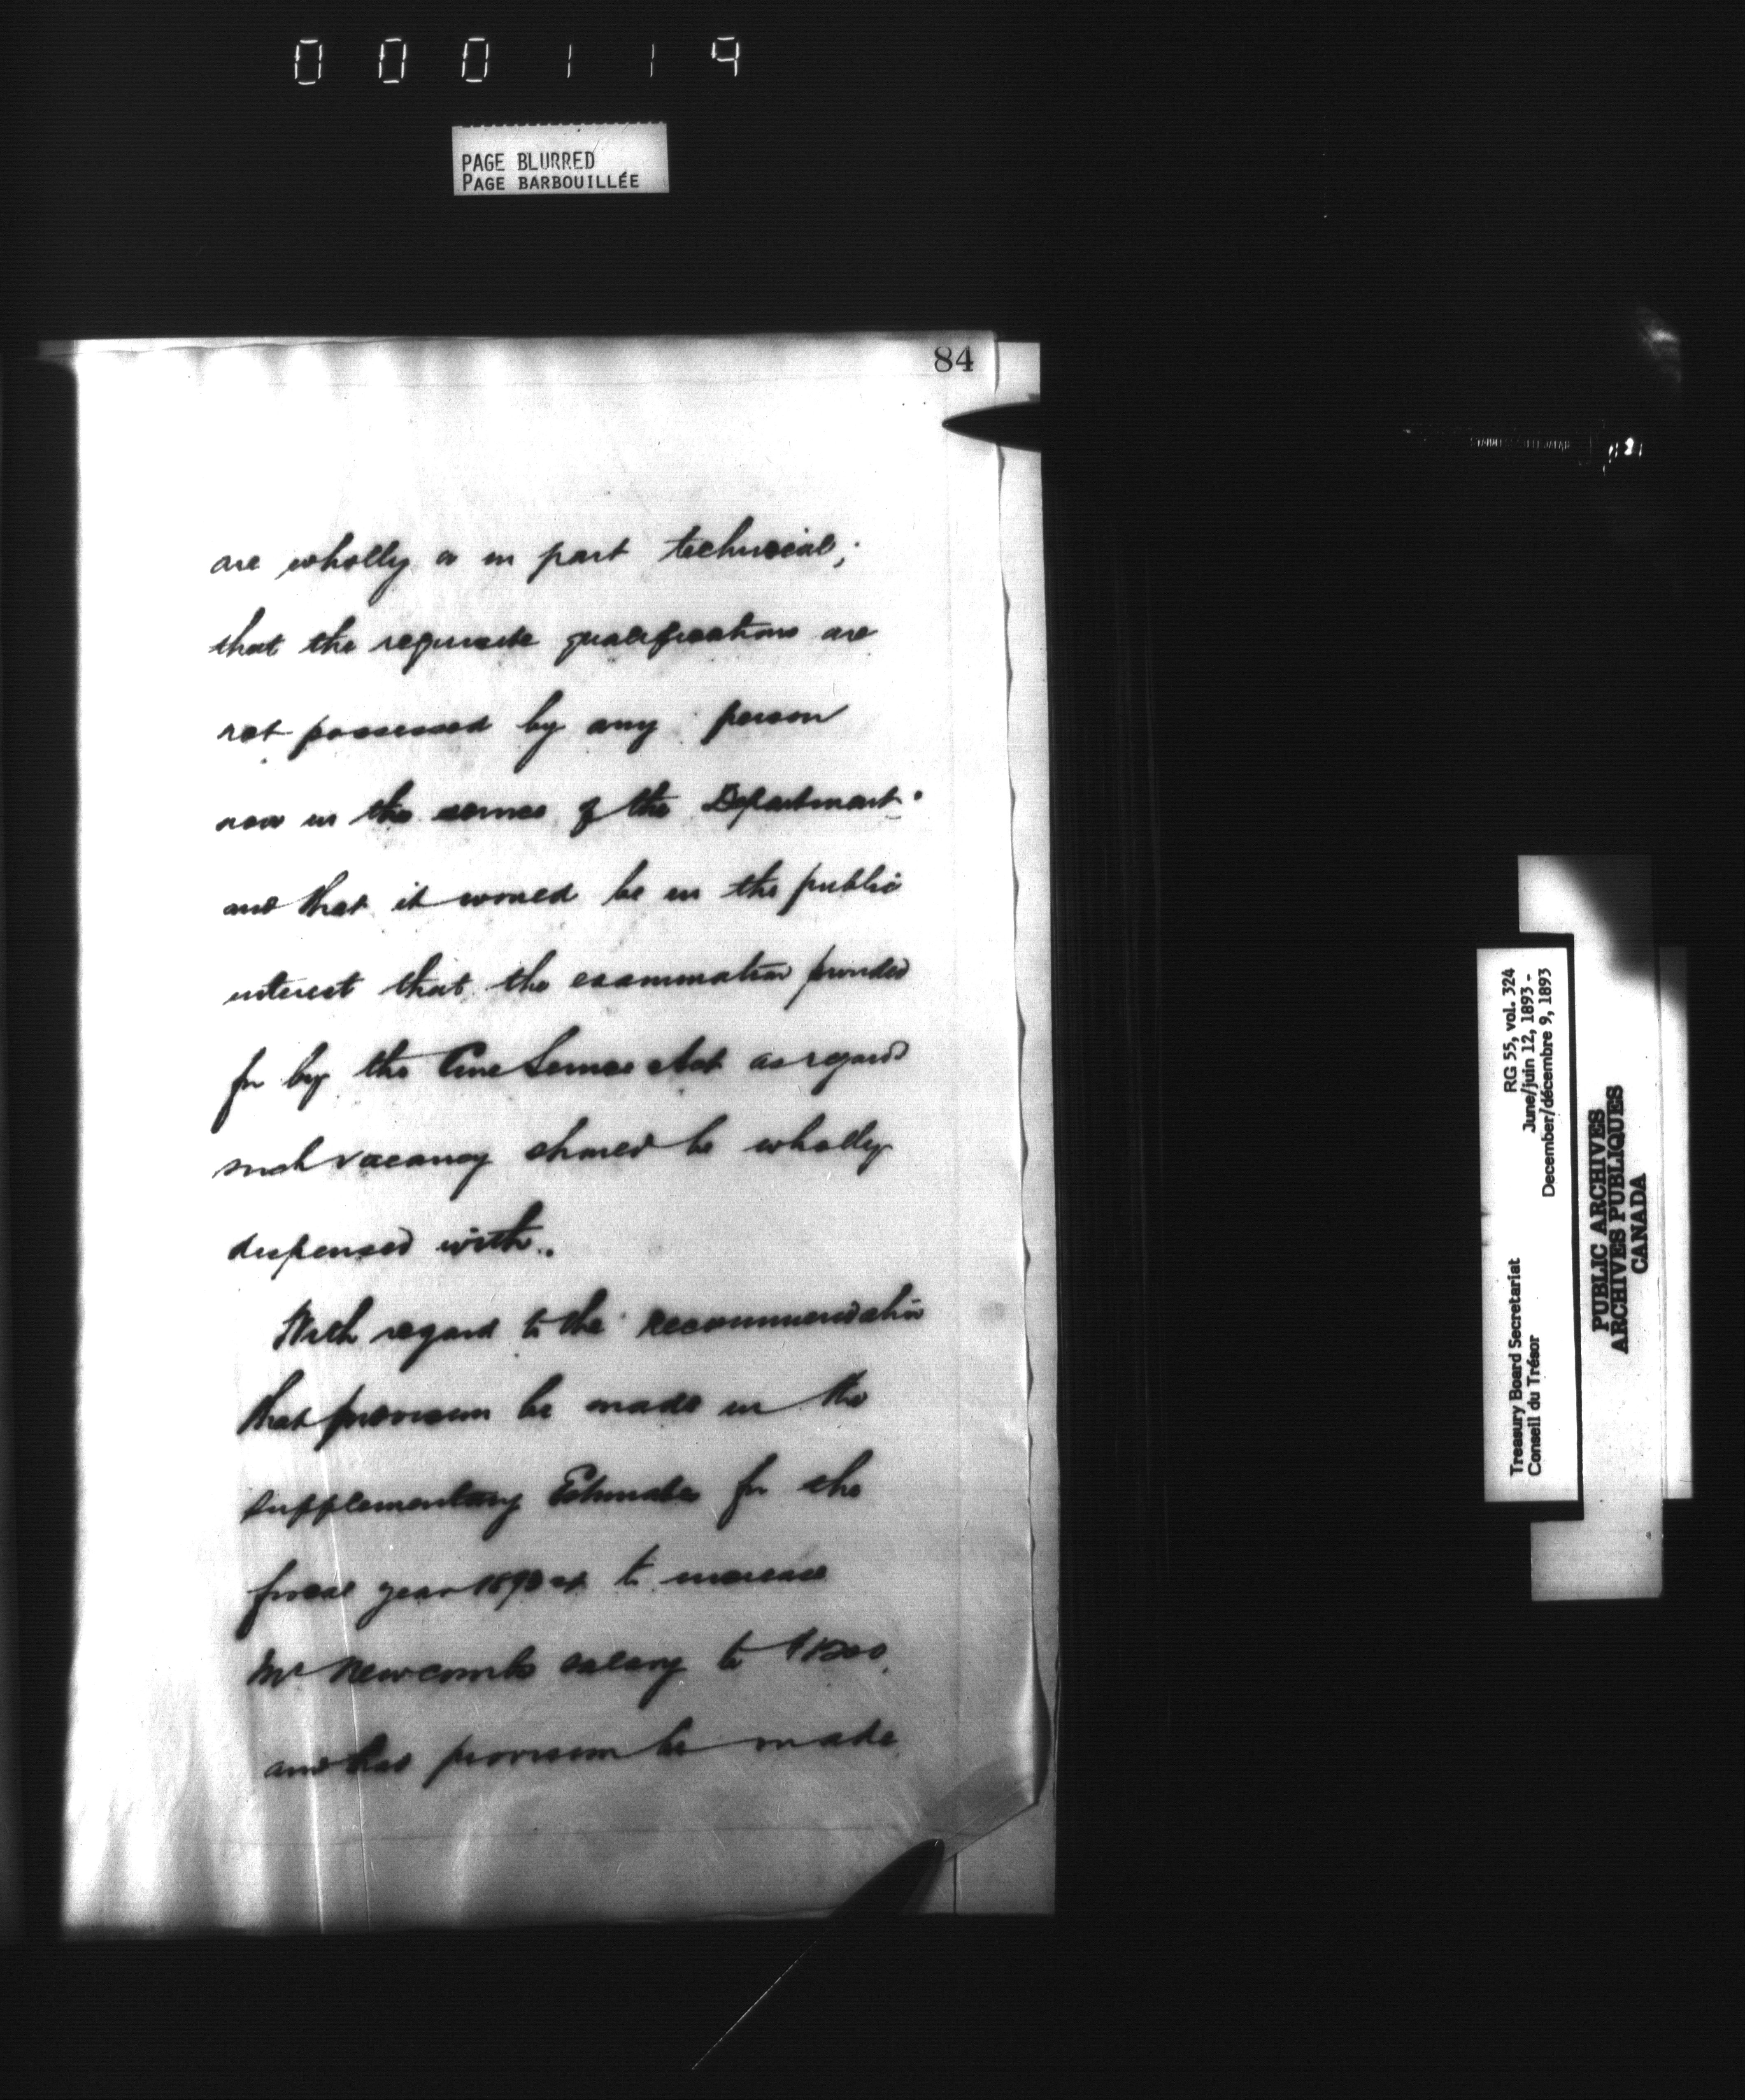 000119
PAGE BLURRED
PAGE BARBOUILLÉE
84
are wholly or in part technical;
that the requisite qualifications are
not possessed by any person
now in the service of the Department.
and that it would be in the public
interest that the examination provided
for by the Civil Service Act as regards
such vacancy should be wholly
dispensed with.
With regard to the recommendation
that provision be made in the
Supplementary Estimates for the
fiscal year 1893-4 to increase
Mr Newcomb's salary to
and that provision be made
RG 55, vol. 324
June/juin 12, 1893 -
December/décembre 9, 1893
Treasury Board Secretariat
Conseil du Trésor
PUBLIC ARCHIVES
ARCHIVES PUBLIQUES
CANADA